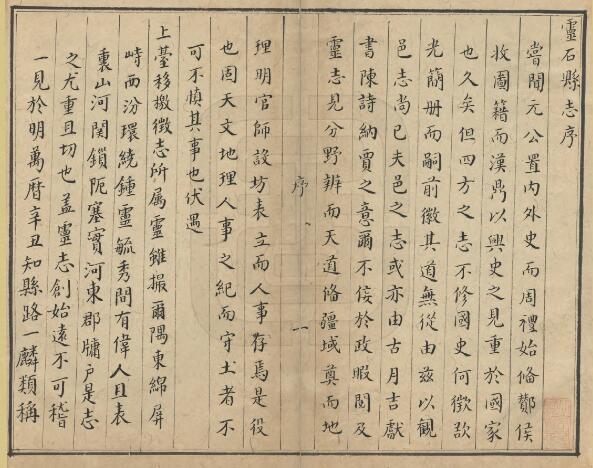 靈石縣志序
嘗聞元公置內外史而周禮始脩酇侯
收圖籍而漢鼎以興史之見重於國家
也久矣但四方之志不修國史何徵歆
光簡册而嗣前徽其道無從由兹以觀
邑志尚已夫邑之志或亦由古月吉獻
書陳詩納賈之意爾不佞於政暇閱及
靈志見分野辨而天道脩疆域奠而地
序
一
理明官師設坊表立而人事存焉是役
也固天文地理人事之紀而守土者不
可不慎其事也伏遇
上臺移檄徵志所属靈雖撮爾隅東綿屏
峙西汾環繞鍾靈毓秀間有偉人且表
裏山河関鎖阨塞實河東郡牖戶是志
之尤重且切也蓋靈志創始遠不可稽
一見於明萬曆辛丑知縣路一麟類稱